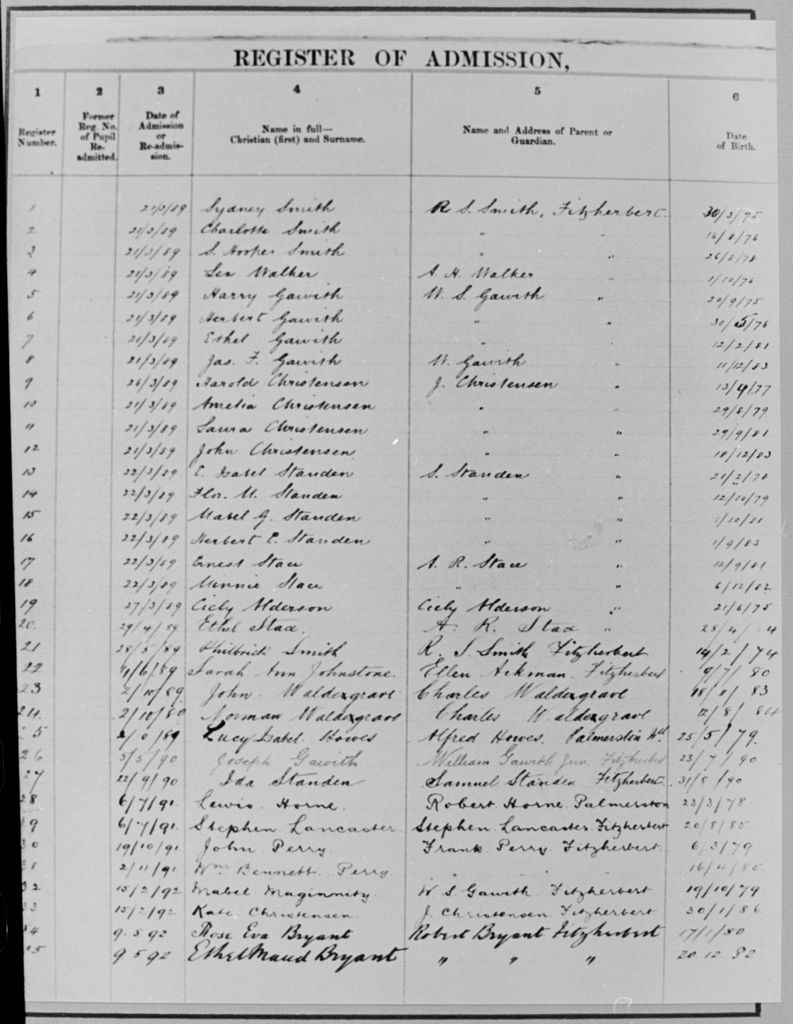 REGISTER OF ADMISSION,
1 2 3 4 5 6
Register Number. Former Reg. No. of Pupil Re-admitted. Date of Admission or Re-admission. Name in full— Christian (first) and Surname. Name and Address of Parent or Guardian. Date of Birth.
1 21/3/89 Sydney Smith R. S. Smith, Fitzherbert 30/3/75
2 21/3/89 Charlotte Smith " " 16/8/76
3 21/3/89 S. Hooper Smith " " 26/8/78
4 21/3/89 Len Walker A. H. Walker " 1/10/76
5 21/3/89 Harry Gawith W. S. Gawith " 20/9/75
6 21/3/89 Herbert Gawith " " 30/5/76
7 21/3/89 Ethel Gawith " " 12/2/81
8 21/3/89 Jas. F. Gawith W. Gawith " 11/12/83
9 26/3/89 Harold Christensen J. Christensen " 13/9/77
10 21/3/89 Amelia Christensen " " 29/8/79
11 21/3/89 Laura Christensen " " 29/9/81
12 21/3/89 John Christensen " " 18/12/83
13 22/3/89 E. Isabel Standen S. Standen " 21/2/78
14 22/3/89 Flor. M. Standen " " 12/10/79
15 22/3/89 Mabel G. Standen " " 1/10/81
16 22/3/89 Herbert E. Standen " " 1/9/83
17 22/3/89 Ernest Stace A. R. Stace " 12/9/81
18 22/3/89 Minnie Stace " " 6/12/82
19 27/3/89 Cicly Alderson Cicly Alderson " 21/6/75
20. 29/4/89 Ethel Stace A. R. Stace " 28/4/
21 28/5/89 Philbrick Smith R. S. Smith Fitzherbert 14/2/74
22 /6/89 Sarah Ann Johnstone. Ellen Arkman. Fitzherbert 9/7/80
23 2/10/89 John. Waldegrave Charles Waldegrave 18/ /83
24. 2/10/89 Norman Waldegrave Charles Waldegrave 12/8/84
5 2/ /89 Lucy Isabel Howes Alfred Howes. Palmerston Nth 25/5/79.
26 5/5/90 Joseph Gawith William Gawith Jun. Fitzherbert 23/7/90
27 22/9/90 Ida Standen Samuel Standen Fitzherbert. 31/8/90
28 6/7/91 Lewis Horne. Robert Horne Palmerston 23/3/78
9 6/7/91. Stephen Lancaster Stephen Lancaster Fitzherbert 20/8/85
30 19/10/91 John Perry. Frank Perry Fitzherbert. 6/3/79
31 2/11/91 Wm Bennett Perry 16/4/85
32 15/2/92 Mabel Maginnity W S Gawith Fitzherbert 19/10/79
33 15/2/92 Kate Christensen. J. Christensen Fitzherbert 30/1/86
34 9.5 92 Rose Eva Bryant Robert Bryant Fitzherbert 17/1/80
35 9 5 92 Ethel Maud Bryant " " " 20.12.82